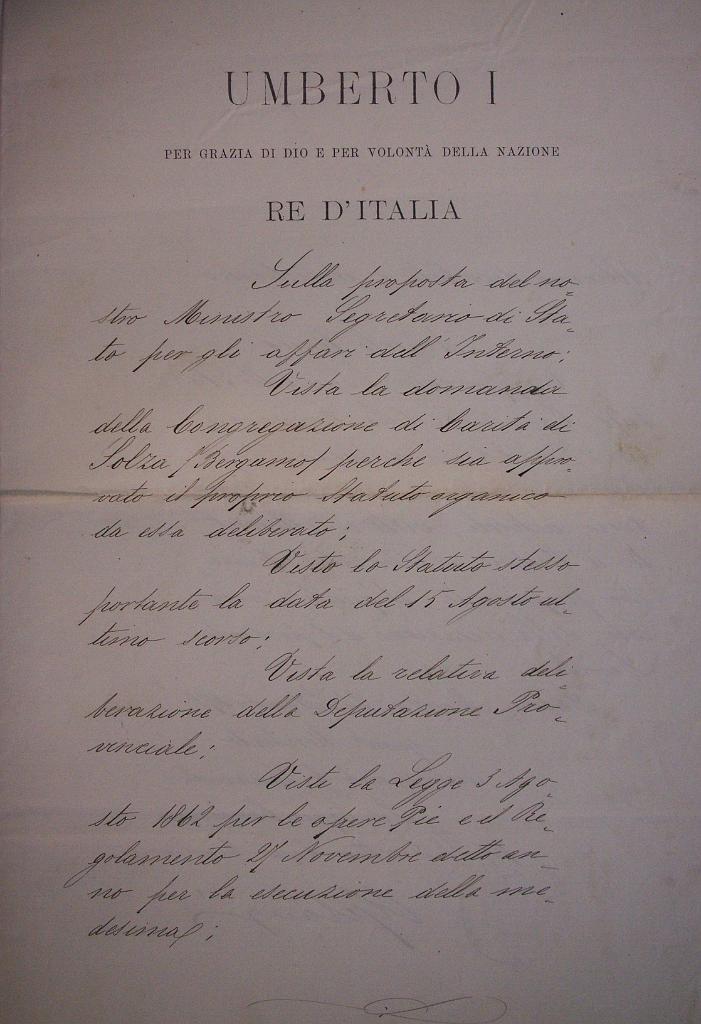 UMBERTO I
PER GRAZIA DI DIO E PER VOLONTÀ DELLA NAZIONE
RE D'ITALIA
Sulla proposta del no=
stro Ministro Segretario di Sta=
to per gli affari dell'Interno;
Vista la domanda
della Congregazione di Carità di
Solza (Bergamo) perché sia appro=
vato il proprio Statuto organico
da essa deliberato;
Visto lo Statuto stesso
portante la data del 15 Agosto ul=
timo scorso;
Vista la relativa deli=
berazione della Deputazione Pro=
vinciale;
Viste la Legge 3 Ago=
sto 1862 per le opere Pie e il Re=
golamento 27 Novembre detto an=
no per la esecuzione della me=
desima;